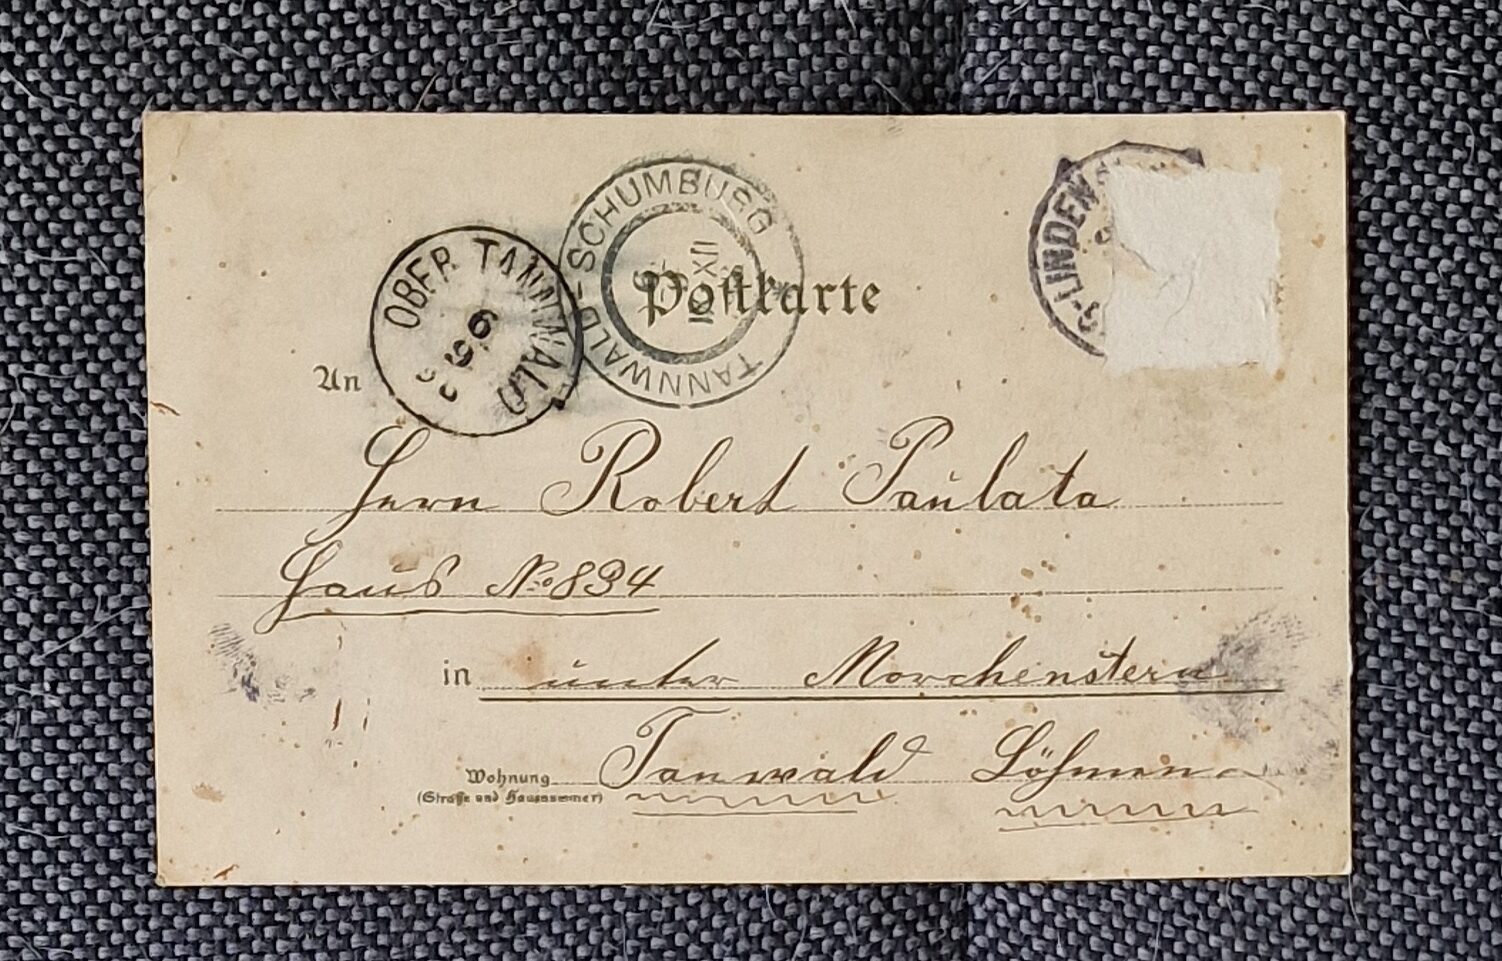 TANNWALD-SCHUMBURG
OBER TANNWALD
9
G-LINDEN
Postkarte
An
Herrn Robert Paulata
Haus No 834
in unter Morchenstern
Wohnung Tanwald Böhmen
(Straße und Hausnummer)